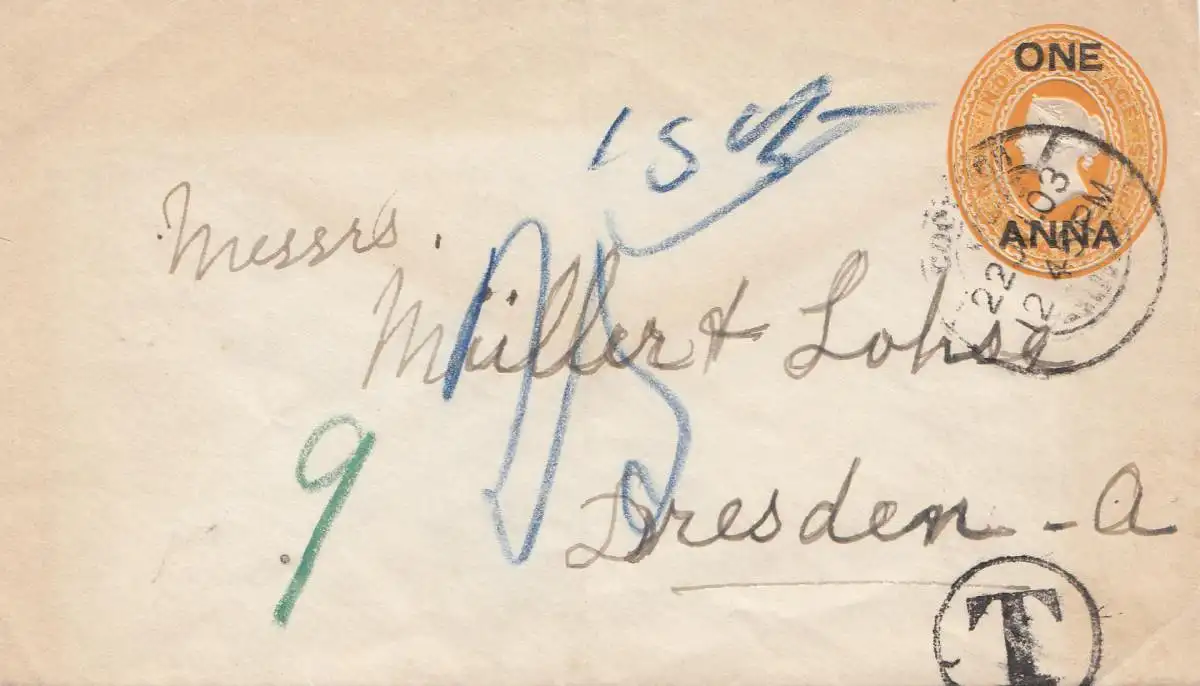 ONE
ANNA
22 03
12
PM
15
Messrs.
Müller & Lohse
25
9
Dresden - A
T